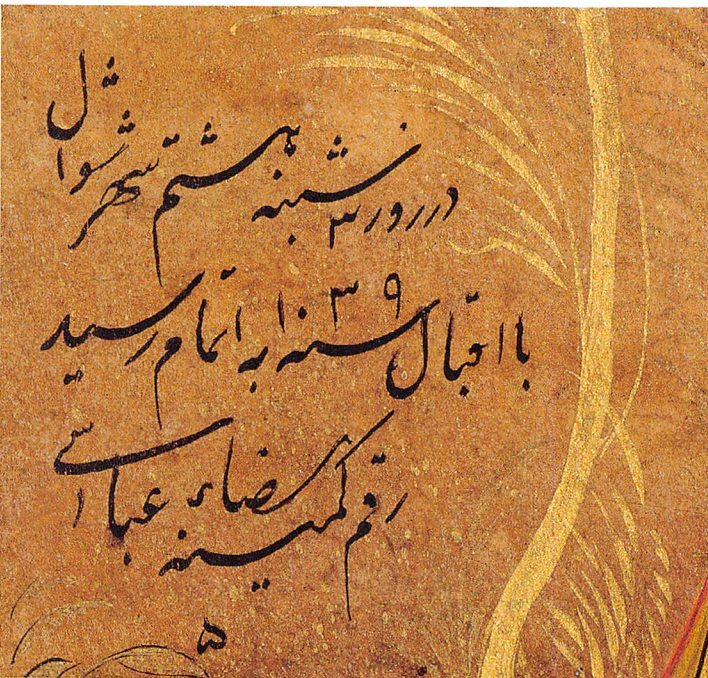 در روز ۳ شنبه هشتم شهر شوال
با اقبال سنه ۱۰۳۹ به اتمام رسید
رقم کمینه رضاء عباسی
۵